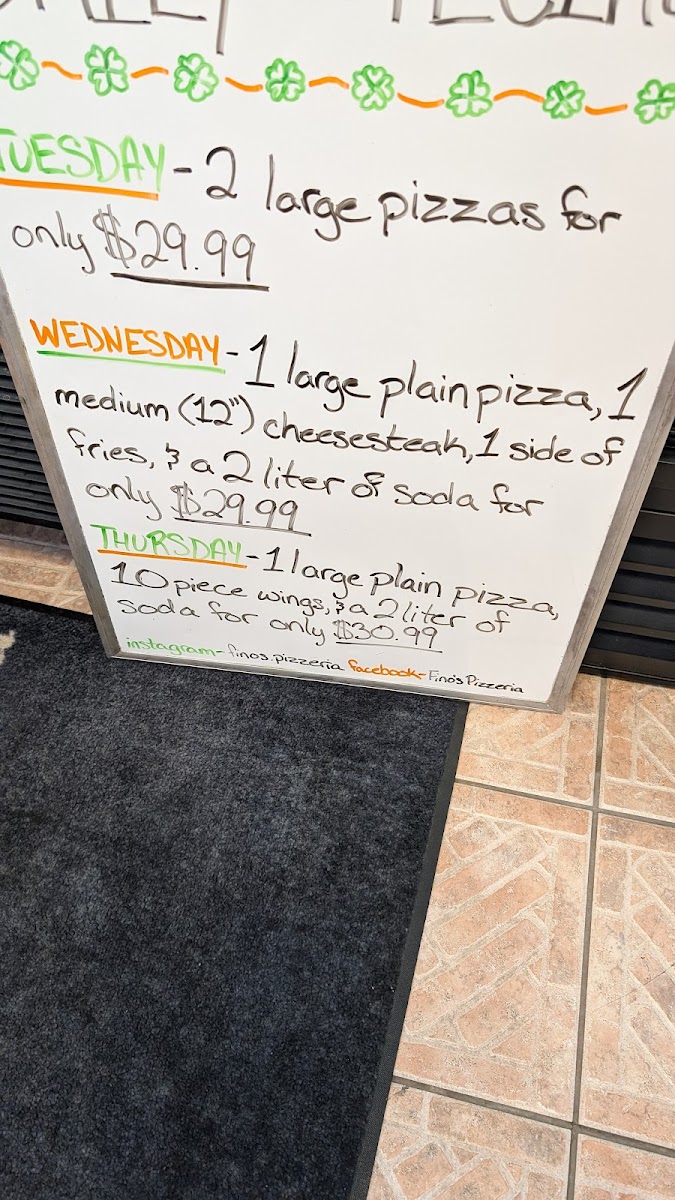 TUESDAY - 2 large pizzas for
only $29.99
WEDNESDAY - 1 large plain pizza, 1
medium (12") cheesesteak, 1 side of
fries, & a 2 liter of soda for
only $29.99
THURSDAY - 1 large plain pizza,
10 piece wings, & a 2 liter of
soda for only $30.99
instagram - finos.pizzeria facebook - Fino's Pizzeria